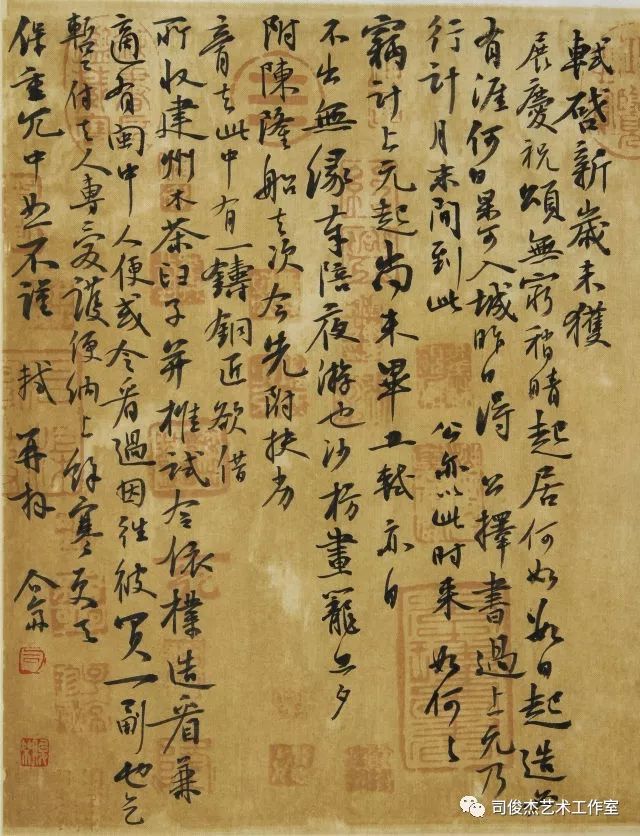 軾啓新歲未獲
展慶祝頌無窮稍晴起居何如數日起造必
有涯何日果可入城昨日得 公擇書過上元乃
行計月末間到此 公亦以此時來 如何々
竊計上元起尚未畢工軾亦自
不出無緣奉陪夜游也沙枋畫籠旦夕
附陳隆船去次今先附扶劣
膏去此中有一鑄銅匠欲借
所收建州木茶臼子并椎試令依樣造看兼
適有閩中人便或令看過因往彼買一副也乞
暫付去人專愛護便納上餘寒更乞
保重冗中恕不謹 軾再拜
司俊杰艺术工作室